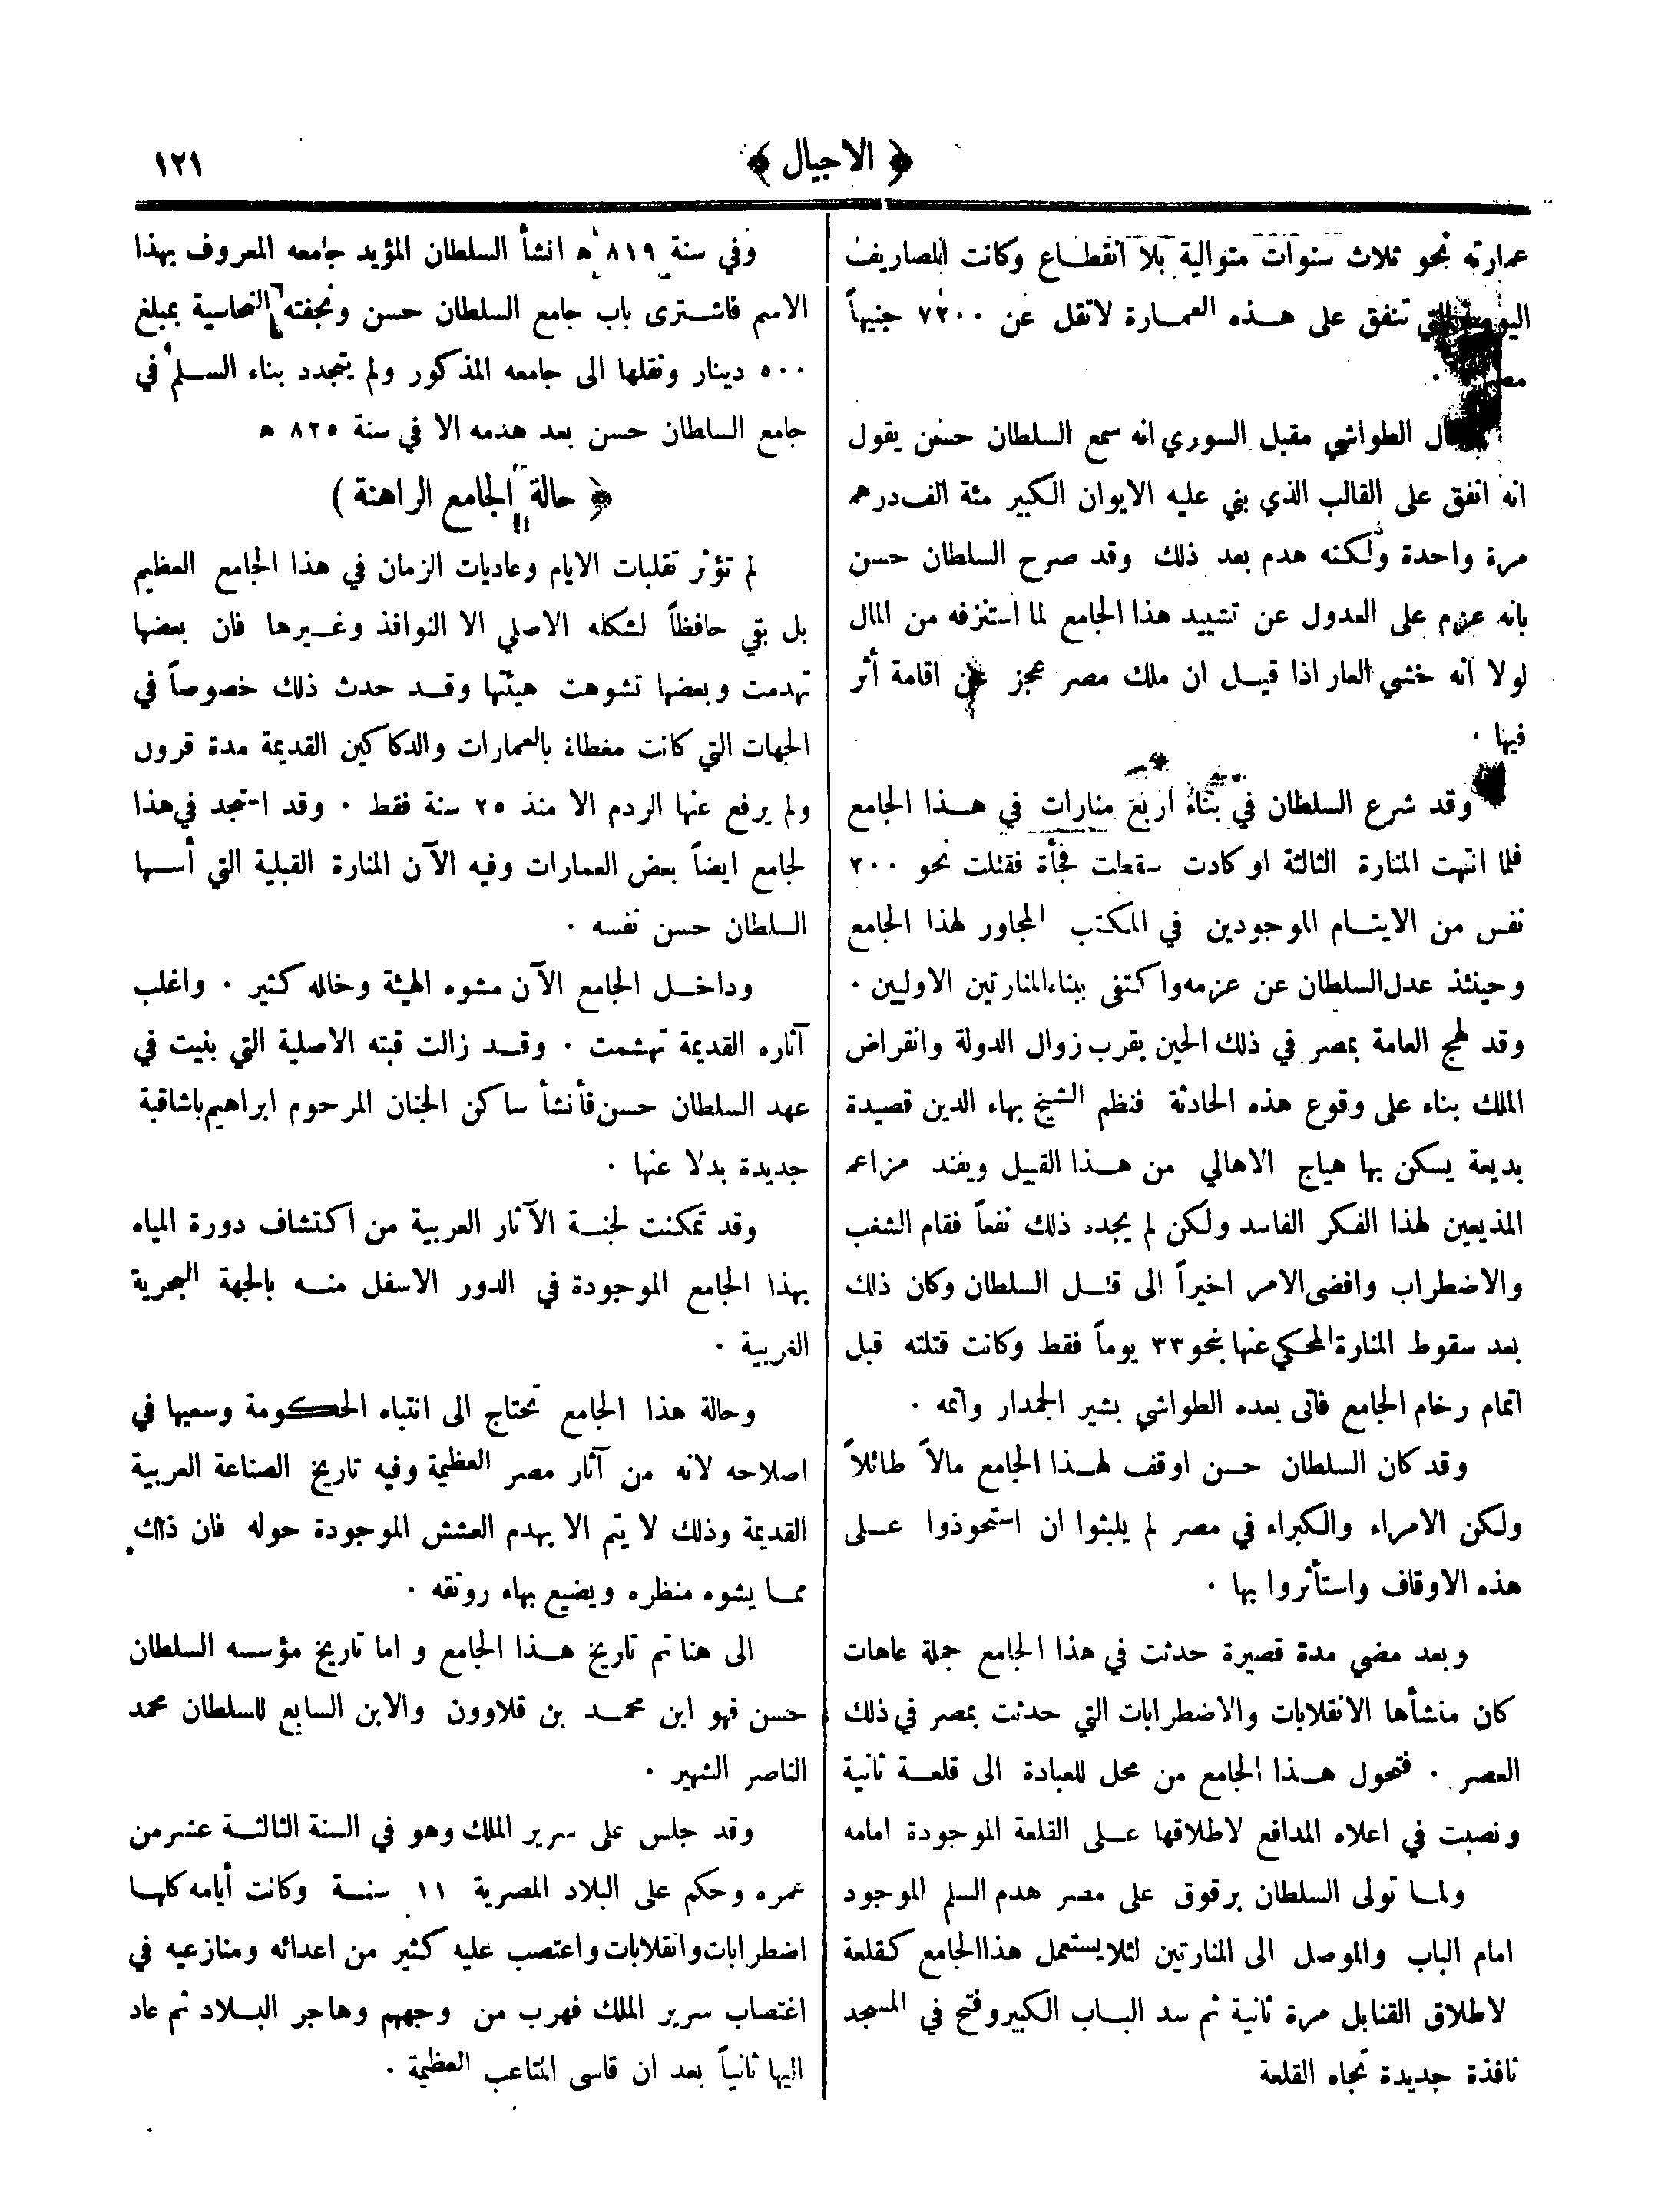 ﴿ الاجيال ﴾
١٢١
عمارته نحو ثلاث سنوات متوالية بلا انقطاع وكانت المصاريف
التي تنفق على هذه العمارة لاتقل عن ٧٢٠٠ جنيهاً
الطواشي مقبل السوري انه سمع السلطان حسن يقول
انه انفق على القالب الذي بني عليه الايوان الكبير مئة الف درهم
مرة واحدة ولكنه هدم بعد ذلك وقد صرح السلطان حسن
بانه عزم على العدول عن تشييد هذا الجامع لما استنزفه من المال
لولا انه خشي العار اذا قيل ان ملك مصر عجز عن اقامة أثر
فيها ·
وقد شرع السلطان في بناء اربع منارات في هذا الجامع
فلما انتهت المنارة الثالثة او كادت سقطت فجأة فقتلت نحو ٣٠٠
نفس من الايتام الموجودين في المكتب المجاور لهذا الجامع
وحينئذ عدل السلطان عن عزمه واكتفى ببناء المنارتين الاوليين ·
وقد لهج العامة بمصر في ذلك الحين بقرب زوال الدولة وانقراض
الملك بناء على وقوع هذه الحادثة فنظم الشيخ بهاء الدين قصيدة
بديعة يسكن بها هياج الاهالي من هذا القبيل ويفند مزاعم
المذيعين لهذا الفكر الفاسد ولكن لم يجدد ذلك نفعاً فقام الشغب
والاضطراب وافضى الامر اخيراً الى قتل السلطان وكان ذلك
بعد سقوط المنارة المحكي عنها بنحو ٣٣ يوماً فقط وكانت قتلته قبل
اتمام رخام الجامع فاتى بعده الطواشي بشير الجمدار واتمه ·
وقد كان السلطان حسن اوقف لهذا الجامع مالاً طائلاً
ولكن الامراء والكبراء في مصر لم يلبثوا ان استحوذوا على
هذه الاوقاف واستأثروا بها ·
وبعد مضي مدة قصيرة حدثت في هذا الجامع جملة عاهات
كان منشأها الانقلابات والاضطرابات التي حدثت بمصر في ذلك
العصر · فتحول هذا الجامع من محل للعبادة الى قلعة ثانية
ونصبت في اعلاه المدافع لاطلاقها على القلعة الموجودة امامه
ولما تولى السلطان برقوق على مصر هدم السلم الموجود
امام الباب والموصل الى المنارتين لئلا يستعمل هذا الجامع كقلعة
لاطلاق القنابل مرة ثانية ثم سد الباب الكبير وفتح في المسجد
نافذة جديدة تجاه القلعة
وفي سنة ٨١٩ ه انشأ السلطان المؤيد جامعه المعروف بهذا
الاسم فاشترى باب جامع السلطان حسن ونجفته النحاسية بمبلغ
٥٠٠ دينار ونقلها الى جامعه المذكور ولم يتجدد بناء السلم في
جامع السلطان حسن بعد هدمه الا في سنة ٨٢٥ ه
﴿ حالة الجامع الراهنة )
لم تؤثر تقلبات الايام وعاديات الزمان في هذا الجامع العظيم
بل بقي حافظاً لشكله الاصلي الا النوافذ وغيرها فان بعضها
تهدمت وبعضها تشوهت هيئتها وقد حدث ذلك خصوصاً في
الجهات التي كانت مغطاة بالعمارات والدكاكين القديمة مدة قرون
ولم يرفع عنها الردم الا منذ ٢٥ سنة فقط · وقد استجد في هذا
لجامع ايضاً بعض العمارات وفيه الآن المنارة القبلية التي أسسها
السلطان حسن نفسه ·
وداخل الجامع الآن مشوه الهيئة وخلله كثير · واغلب
آثاره القديمة تهشمت · وقد زالت قبته الاصلية التي بنيت في
عهد السلطان حسن فأنشأ ساكن الجنان المرحوم ابراهيم باشا قبة
جديدة بدلا عنها ·
وقد تمكنت لجنة الآثار العربية من اكتشاف دورة المياه
بهذا الجامع الموجودة في الدور الاسفل منه بالجهة البحرية
الغربية ·
وحالة هذا الجامع تحتاج الى انتباه الحكومة وسعيها في
اصلاحه لانه من آثار مصر العظيمة وفيه تاريخ الصناعة العربية
القديمة وذلك لا يتم الا بهدم العشش الموجودة حوله فان ذلك
مما يشوه منظره ويضيع بهاء رونقه ·
الى هنا تم تاريخ هذا الجامع و اما تاريخ مؤسسه السلطان
حسن فهو ابن محمد بن قلاوون والابن السابع للسلطان محمد
الناصر الشهير ·
وقد جلس على سرير الملك وهو في السنة الثالثة عشر من
عمره وحكم على البلاد المصرية ١١ سنة وكانت أيامه كلها
اضطرابات وانقلابات واعتصب عليه كثير من اعدائه ومنازعيه في
اغتصاب سرير الملك فهرب من وجههم وهاجر البلاد ثم عاد
اليها ثانياً بعد ان قاسى المتاعب العظيمة ·